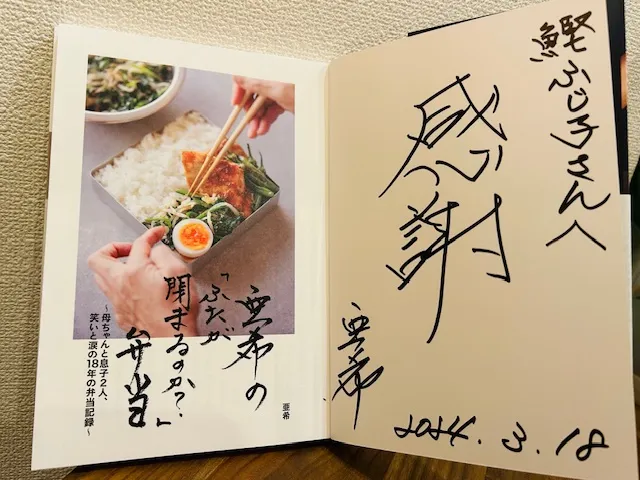 亜希の
「ふたが
閉まるのか?」
弁当
〜母ちゃんと息子2人、
笑いと涙の18年の弁当記録〜
亜希
鰹ふじ子さんへ
感謝
亜希
2024.3.18